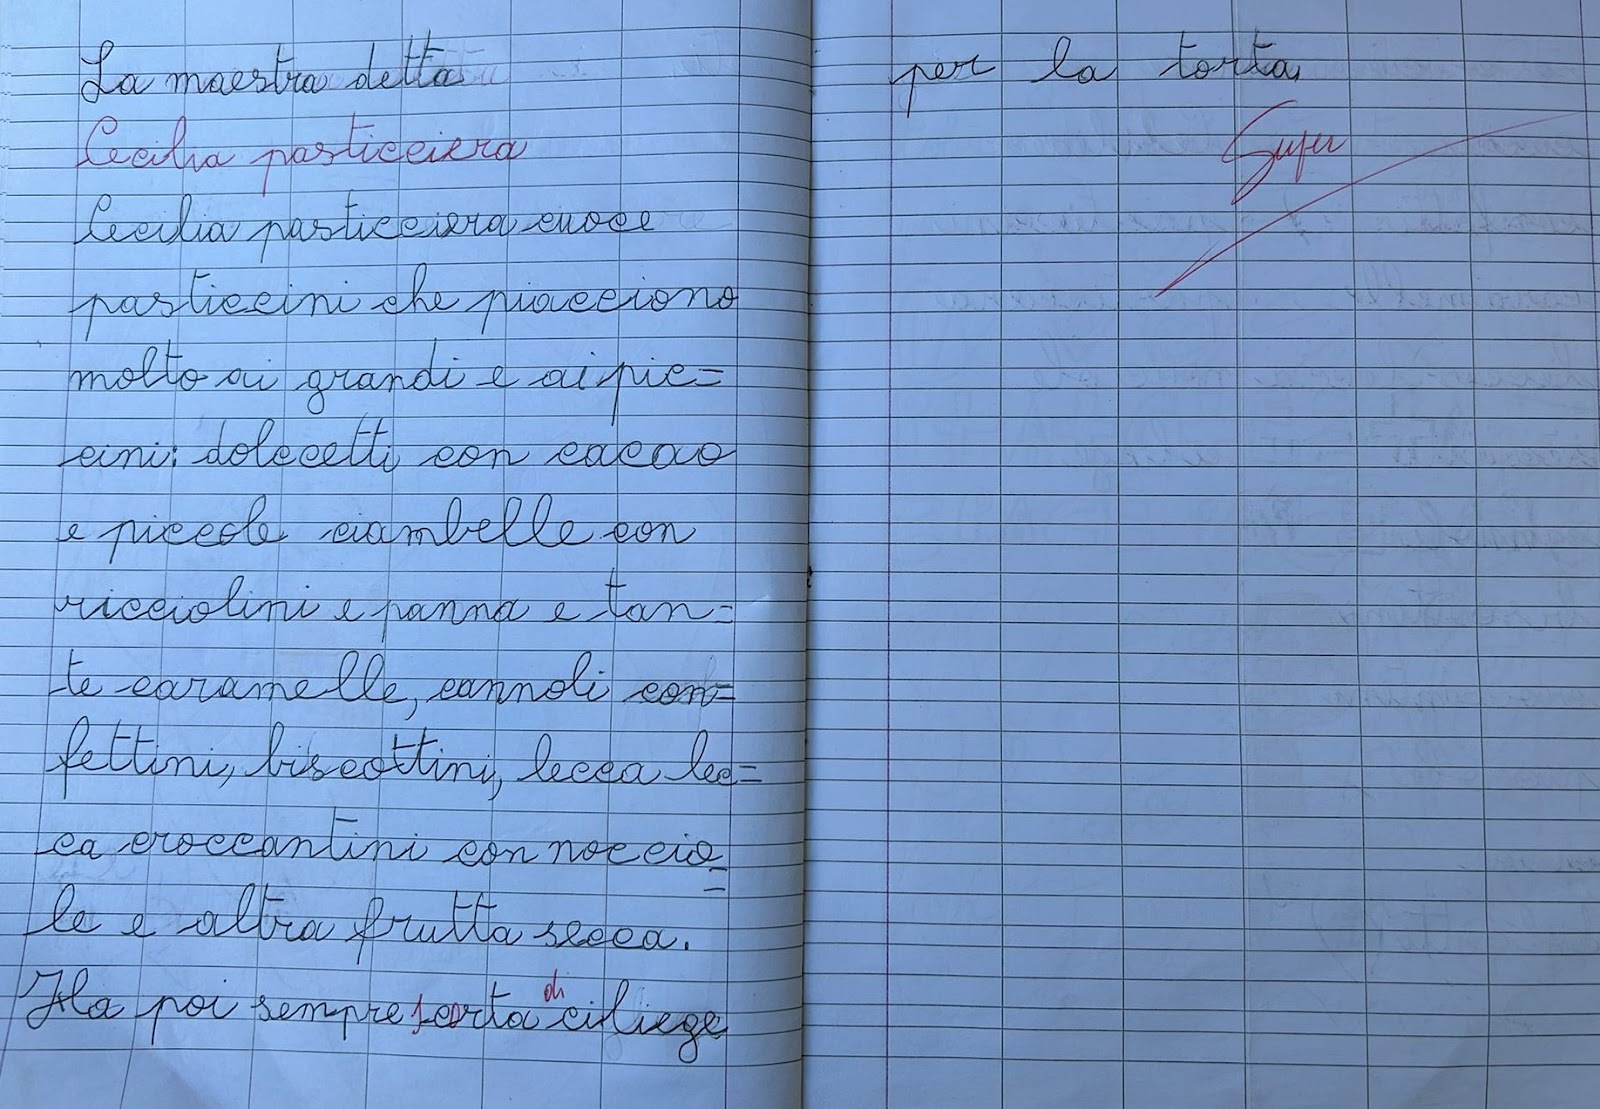 La maestra detta
Cecilia pasticciera
Cecilia pasticciera cuoce
pasticcini che piacciono
molto ai grandi e ai pic=
cini: dolcetti con cacao
e piccole ciambelle con
ricciolini e panna e tan=
te caramelle, cannoli con=
fettini, biscottini, lecca lec=
ca croccantini con noccio
=
le e altra frutta secca.
di
Ha poi sempre scorta ciliege
per la torta.
Super